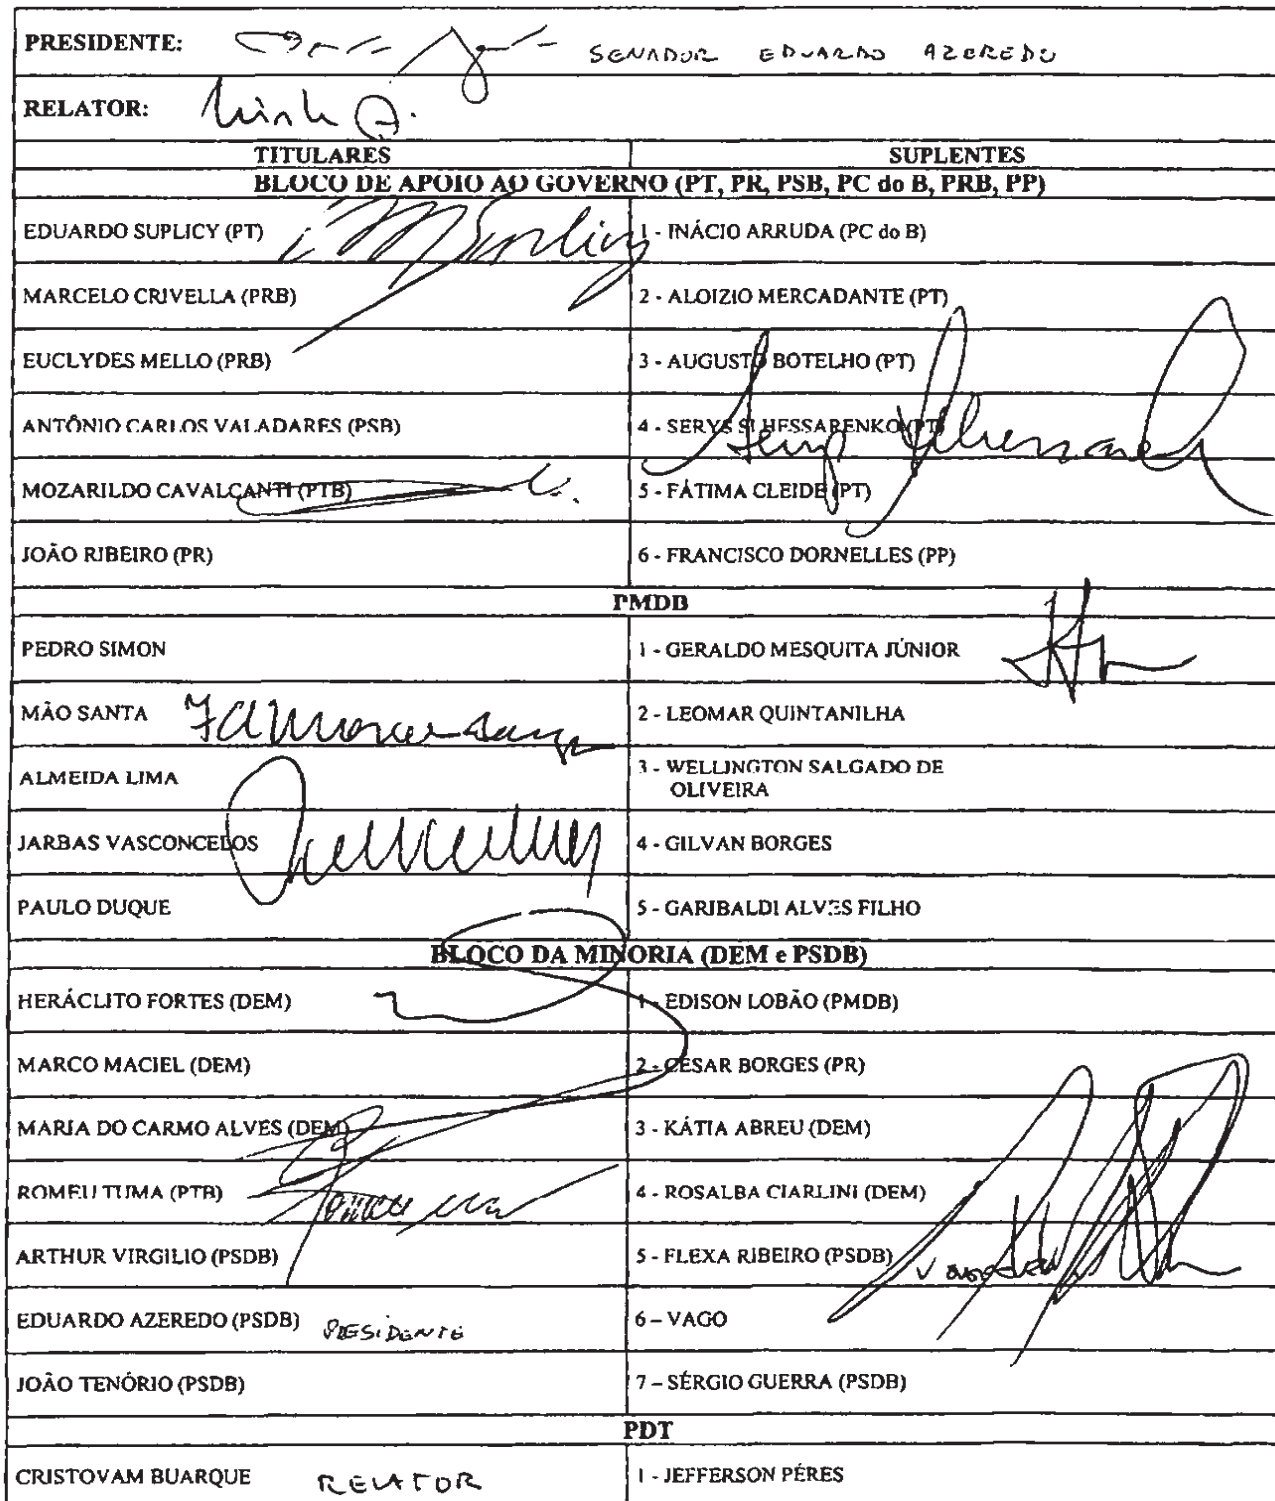 PRESIDENTE: SENADOR EDUARDO AZEREDO
RELATOR:
TITULARES SUPLENTES
BLOCO DE APOIO AO GOVERNO (PT, PR, PSB, PC do B, PRB, PP)
EDUARDO SUPLICY (PT) 1 - INÁCIO ARRUDA (PC do B)
MARCELO CRIVELLA (PRB) 2 - ALOIZIO MERCADANTE (PT)
EUCLYDES MELLO (PRB) 3 - AUGUSTO BOTELHO (PT)
ANTÔNIO CARLOS VALADARES (PSB) 4 - SERYS SLHESSARENKO (PT)
MOZARILDO CAVALCANTI (PTB) 5 - FÁTIMA CLEIDE (PT)
JOÃO RIBEIRO (PR) 6 - FRANCISCO DORNELLES (PP)
PMDB
PEDRO SIMON 1 - GERALDO MESQUITA JÚNIOR
MÃO SANTA 2 - LEOMAR QUINTANILHA
ALMEIDA LIMA 3 - WELLINGTON SALGADO DE
OLIVEIRA
JARBAS VASCONCELOS 4 - GILVAN BORGES
PAULO DUQUE 5 - GARIBALDI ALVES FILHO
BLOCO DA MINORIA (DEM e PSDB)
HERÁCLITO FORTES (DEM) 1 - EDISON LOBÃO (PMDB)
MARCO MACIEL (DEM) 2 - CÉSAR BORGES (PR)
MARIA DO CARMO ALVES (DEM) 3 - KÁTIA ABREU (DEM)
ROMEU TUMA (PTB) 4 - ROSALBA CIARLINI (DEM)
ARTHUR VIRGILIO (PSDB) 5 - FLEXA RIBEIRO (PSDB)
EDUARDO AZEREDO (PSDB) PRESIDENTE 6 – VAGO
JOÃO TENÓRIO (PSDB) 7 – SÉRGIO GUERRA (PSDB)
PDT
CRISTOVAM BUARQUE RELATOR 1 - JEFFERSON PÉRES